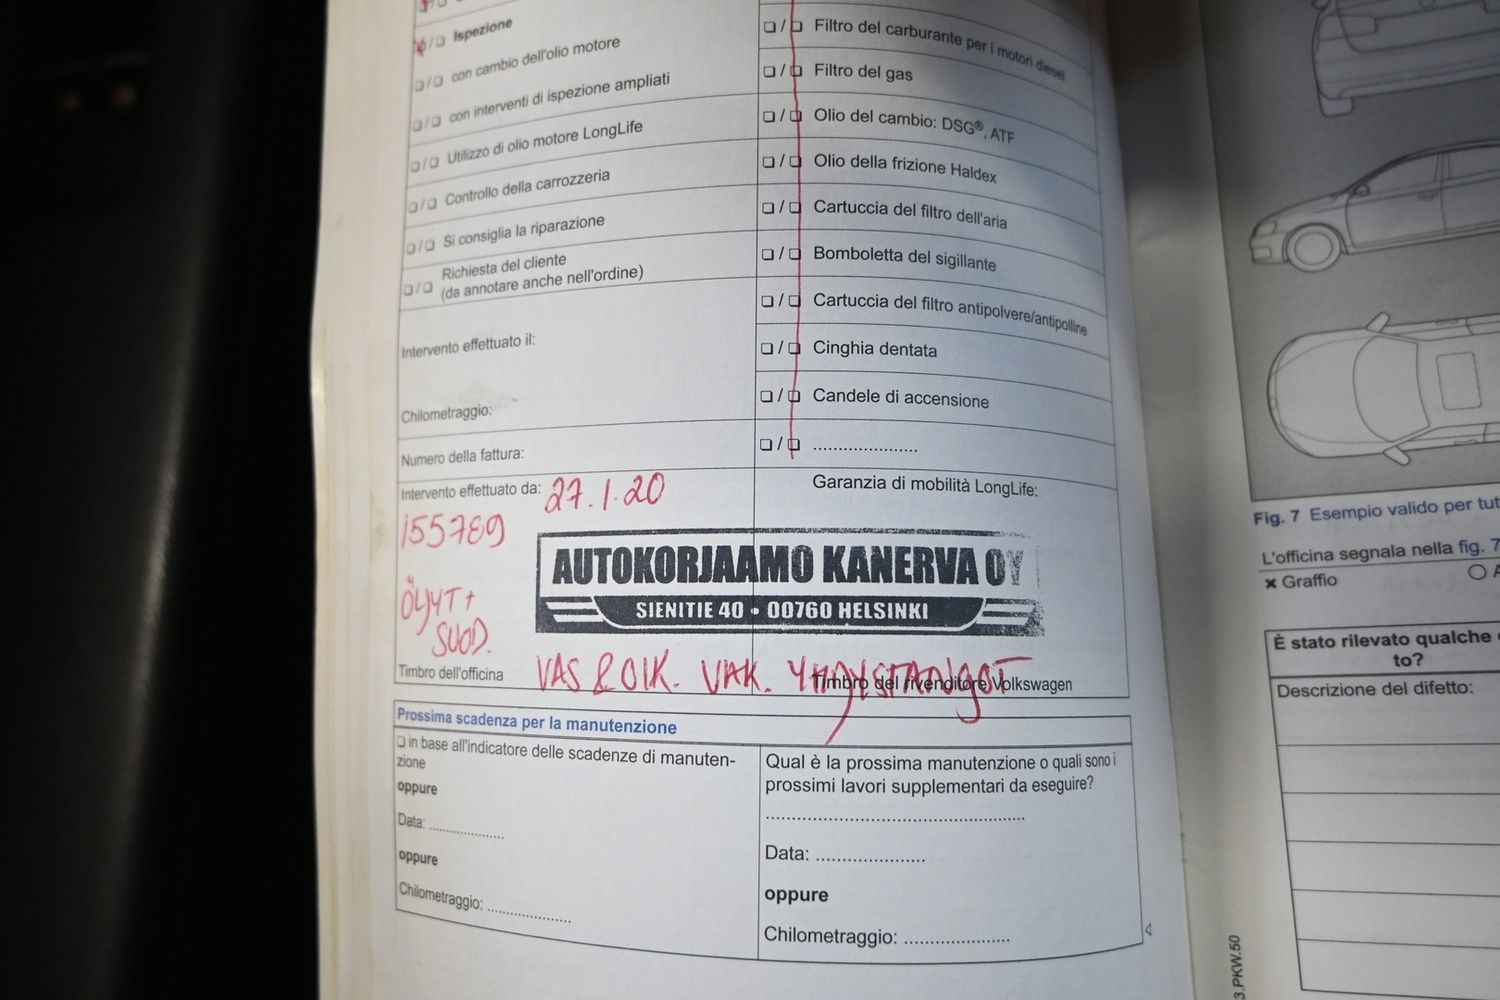 ❏ / ❏ Ispezione
❏ / ❏ con cambio dell'olio motore
❏ / ❏ con interventi di ispezione ampliati
❏ / ❏ Utilizzo di olio motore LongLife
❏ / ❏ Controllo della carrozzeria
❏ / ❏ Si consiglia la riparazione
❏ / ❏ Richiesta del cliente
(da annotare anche nell'ordine)
Intervento effettuato il:
Chilometraggio:
Numero della fattura:
❏ / ❏ Filtro del carburante per i motori diesel
❏ / ❏ Filtro del gas
❏ / ❏ Olio del cambio: DSG®, ATF
❏ / ❏ Olio della frizione Haldex
❏ / ❏ Cartuccia del filtro dell'aria
❏ / ❏ Bomboletta del sigillante
❏ / ❏ Cartuccia del filtro antipolvere/antipolline
❏ / ❏ Cinghia dentata
❏ / ❏ Candele di accensione
❏ / ❏ ....................
Intervento effettuato da: 27.1.20
Garanzia di mobilità LongLife:
155789
AUTOKORJAAMO KANERVA OY
SIENITIE 40 • 00760 HELSINKI
ÖLJYT +
SUOD.
VAS & OIK. VAK. YHDYSTANGOT
Timbro dell'officina
Timbro del rivenditore Volkswagen
Prossima scadenza per la manutenzione
❏ in base all'indicatore delle scadenze di manuten-
zione
oppure
Data: ..................
oppure
Chilometraggio: ..................
Qual è la prossima manutenzione o quali sono i
prossimi lavori supplementari da eseguire?
Data: ....................
oppure
Chilometraggio: ....................
Fig. 7 Esempio valido per tut
L'officina segnala nella fig. 7
✖ Graffio
È stato rilevato qualche
to?
Descrizione del difetto:
3.PKW.50